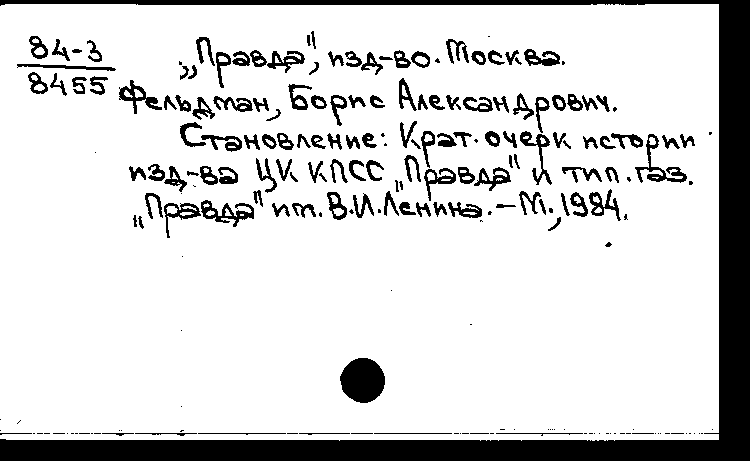 84-3
8455
„Правда", изд-во. Москва.
Фельдман, Борис Александрович.
Становление: Крат. очерк истории
изд-ва ЦК КПСС „Правда" и тип. газ.
„Правда" им. В.И.Ленина. – М., 1984.